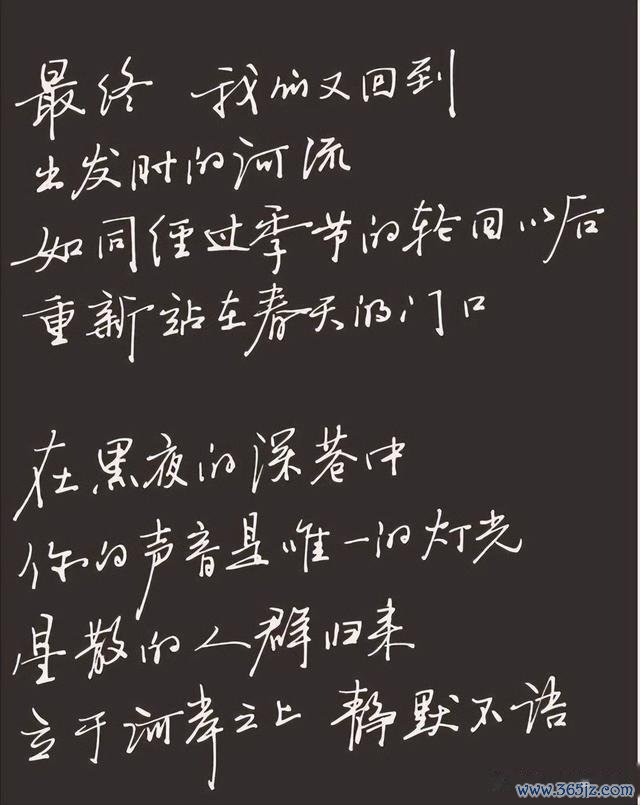 最终 我们又回到
出发时的河流
如同经过季节的轮回以后
重新站在春天的门口
在黑夜的深巷中
你的声音是唯一的灯光
星散的人群归来
立于河岸之上 静默不语
www.365jz.com